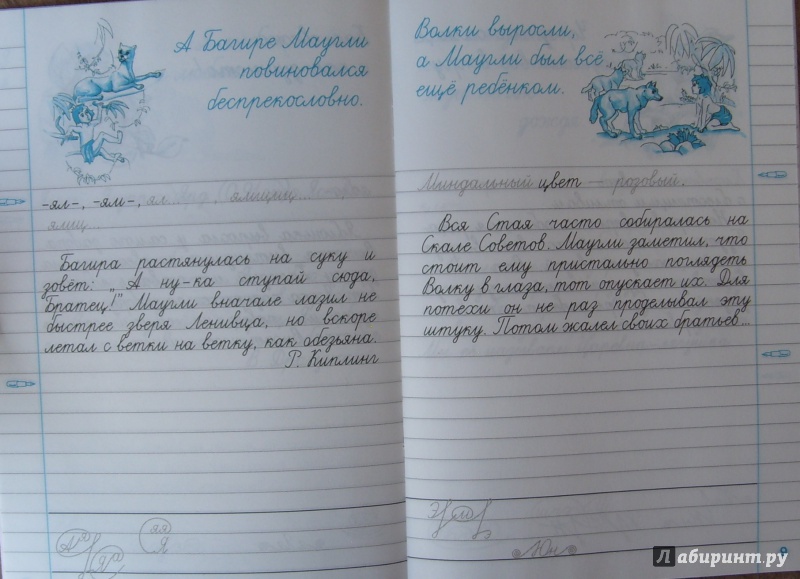 А Багире Маугли
повиновался
беспрекословно.
-ял-, -ям-, ял... , ямщиц...
ямщ...
Багира растянулась на суку и
зовёт: „А ну-ка ступай сюда,
Братец!" Маугли вначале лазил не
быстрее зверя Ленивца, но вскоре
летал с ветки на ветку, как обезьяна.
Р. Киплинг
ая
Я
Волки выросли,
а Маугли был всё
ещё ребёнком.
Миндальный цвет — розовый.
Вся Стая часто собиралась на
Скале Советов. Маугли заметил, что
стоит ему пристально поглядеть
Волку в глаза, тот опускает их. Для
потехи он не раз проделывал эту
штуку. Потом жалел своих братьев...
9
Лабиринт.ру